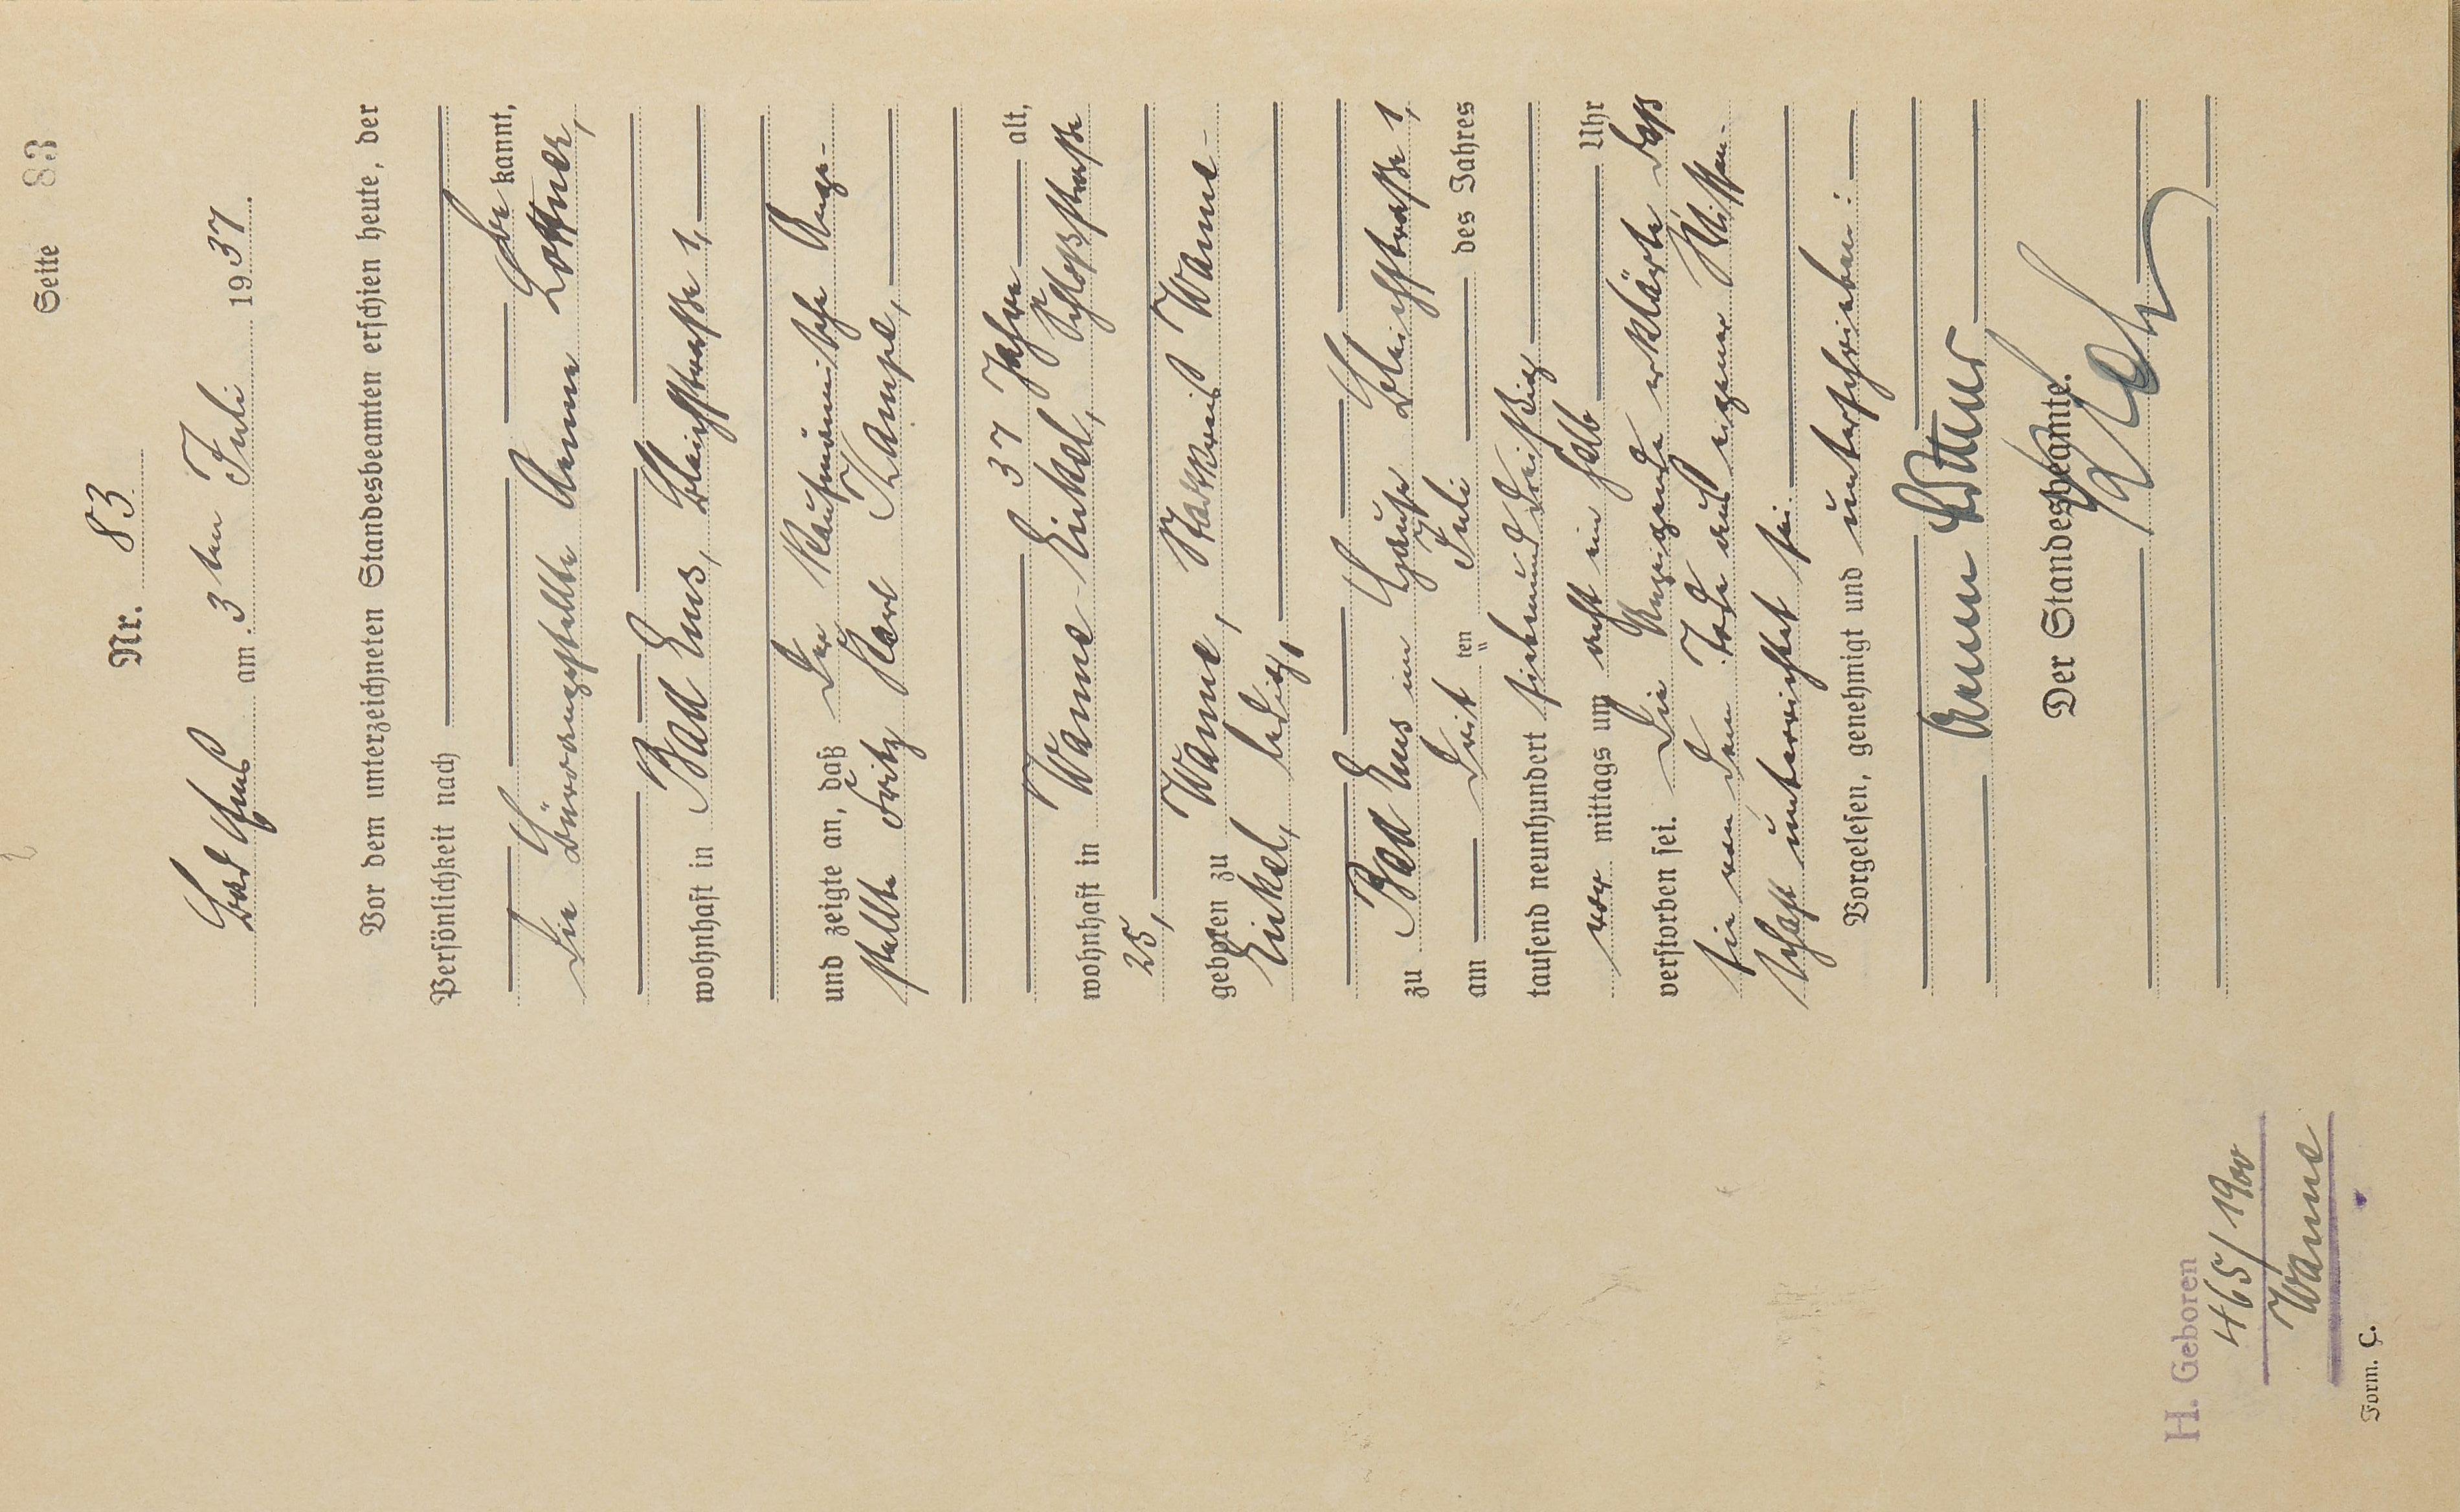 Seite 83
Nr. 83
Bad Ems am 3 ten Juli 1937.
Vor dem unterzeichneten Standesbeamten erschien heute, der
Persönlichkeit nach
be kannt,
die Büroangestellte Anna Lottner,
wohnhaft in Bad Ems, Bleichstraße 1,
und zeigte an, daß der kaufmännische Ange-
stellte Fritz Karl Kampe,
37 Jahre alt,
wohnhaft in Wanne-Eickel, Schloßstraße
25,
geboren zu Wanne, Stadtkreis Wanne-
Eickel, ledig,
zu Bad Ems im Hause Bleichstraße 1,
am drit ten Juli des Jahres
tausend neunhundert siebenunddreißig
vor mittags um acht ein halb Uhr
verstorben sei. Die Anzeigende erklärte daß
sie von dem Tode aus eigener Wissen-
schaft unterrichtet sei.
Vorgelesen, genehmigt und unterschrieben:
Anna Lottner
Der Standesbeamte.
H. Geboren
465/1900
Wanne
Form. C.